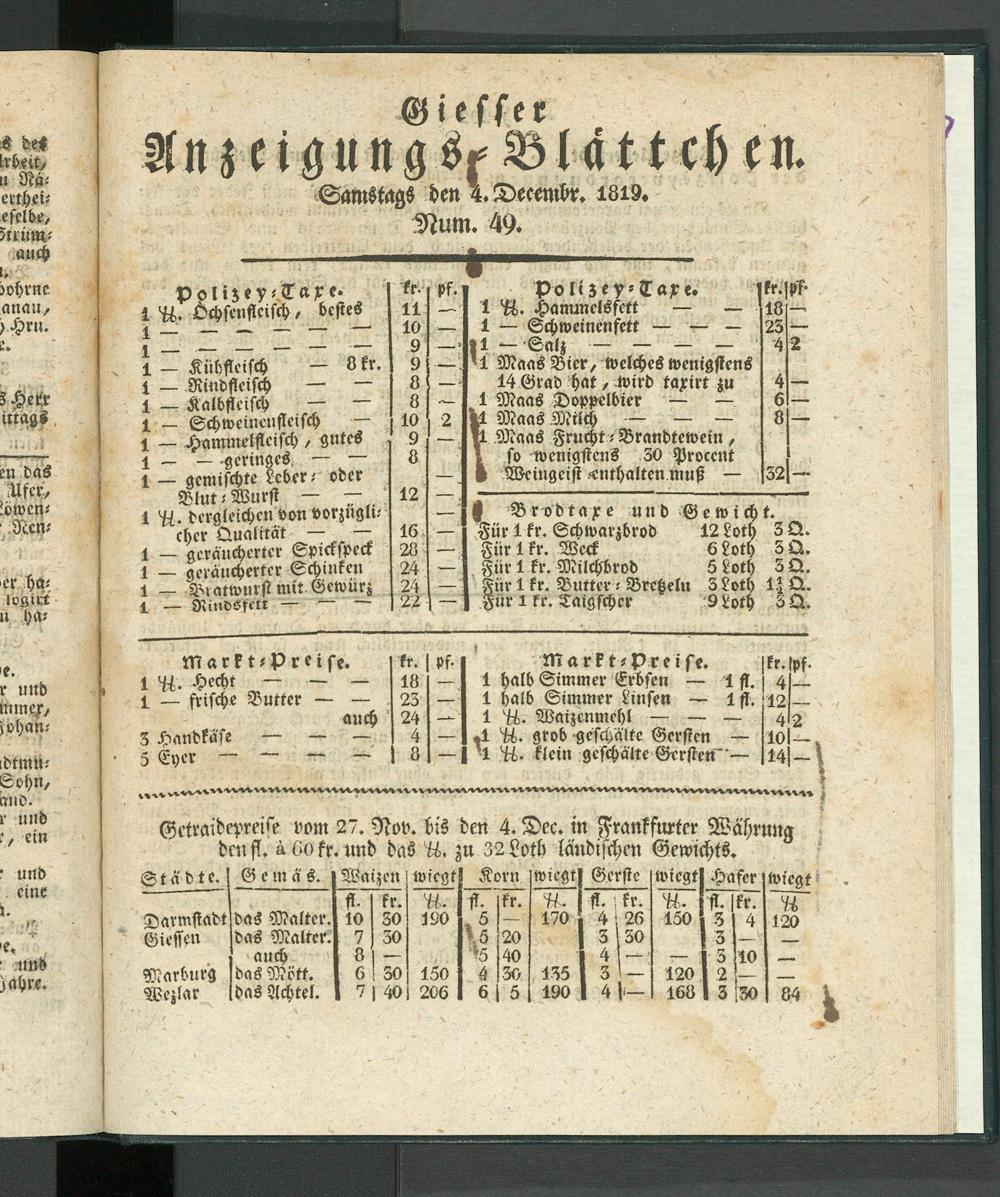 s des
Arbeit,
n Nä⸗
erthei⸗
eselbe,
Strüm⸗
auch
n.
bohrne
anau,
Hrn.
e.
s Herr
ittags
en das
Ufer,
Löwen⸗
Nen⸗
er ha⸗
logirt
n ha⸗
e.
r und
mmer,
Johan⸗
dtmu⸗
Sohn,
and.
r und
, ein
r und
eine
e.
und
Jahre.
Giesser
Anzeigungs⸗Blättchen.
Samstags den 4. Decembr. 1819.
Num. 49.
Polizey⸗Taxe. kr. pf.
1 ℔. Ochsenfleisch, bestes 11 —
1 — — — — — 10 —
1 — — — — — 9 —
1 — Kühfleisch — 8 kr. 9 —
1 — Rindfleisch — — 8 —
1 — Kalbfleisch — — 8 —
1 — Schweinenfleisch — 10 2
1 — Hammelfleisch, gutes 9 —
1 — — geringes — — 8 —
1 — gemischte Leber⸗ oder
Blut⸗Wurst — — 12 —
1 ℔. dergleichen von vorzügli⸗
cher Qualität — — 16 —
1 — geräucherter Spickspeck 28 —
1 — geräucherter Schinken 24 —
1 — Bratwurst mit Gewürz 24 —
1 — Rindsfett — — 22 —
Polizey⸗Taxe. kr. pf.
1 ℔. Hammelsfett — — 18 —
1 — Schweinenfett — — — 23 —
1 — Salz — — — — 4 2
1 Maas Bier, welches wenigstens
14 Grad hat, wird taxirt zu 4 —
1 Maas Doppelbier — — 6 —
1 Maas Milch — — — 8 —
1 Maas Frucht⸗Brandtewein,
so wenigstens 30 Procent
Weingeist enthalten muß — 32 —
Brodtaxe und Gewicht.
Für 1 kr. Schwarzbrod 12 Loth 3 Q.
Für 1 kr. Weck 6 Loth 3 Q.
Für 1 kr. Milchbrod 5 Loth 3 Q.
Für 1 kr. Butter⸗Bretzeln 3 Loth 1½ Q.
Für 1 kr. Taigscher 9 Loth 3 Q.
Markt⸗Preise. kr. pf.
1 ℔. Hecht — — — 18 —
1 — frische Butter — — 23 —
auch 24 —
3 Handkäse — — — 4 —
5 Eyer — — — — 8 —
Markt⸗Preise. kr. pf.
1 halb Simmer Erbsen — 1 fl. 4 —
1 halb Simmer Linsen — 1 fl. 12 —
1 ℔. Waizenmehl — — — 4 2
1 ℔. grob geschälte Gersten — 10 —
1 ℔. klein geschälte Gersten — 14 —
Getraidepreise vom 27. Nov. bis den 4. Dec. in Frankfurter Währung
den fl. à 60 kr. und das ℔. zu 32 Loth ländischen Gewichts.
Städte. Gemäs. Waizen wiegt Korn wiegt Gerste wiegt Hafer wiegt
fl. kr. ℔. fl. kr. ℔. fl. kr. ℔. fl. kr. ℔
Darmstadt das Malter. 10 30 190 5 — 170 4 26 150 3 4 120
Giessen das Malter. 7 30 5 20 3 30 3 — —
auch 8 — 5 40 4 — — 3 10 —
Marburg das Mött. 6 30 150 4 30 135 3 — 120 2 — —
Wezlar das Achtel. 7 40 206 6 5 190 4 — 168 3 30 84